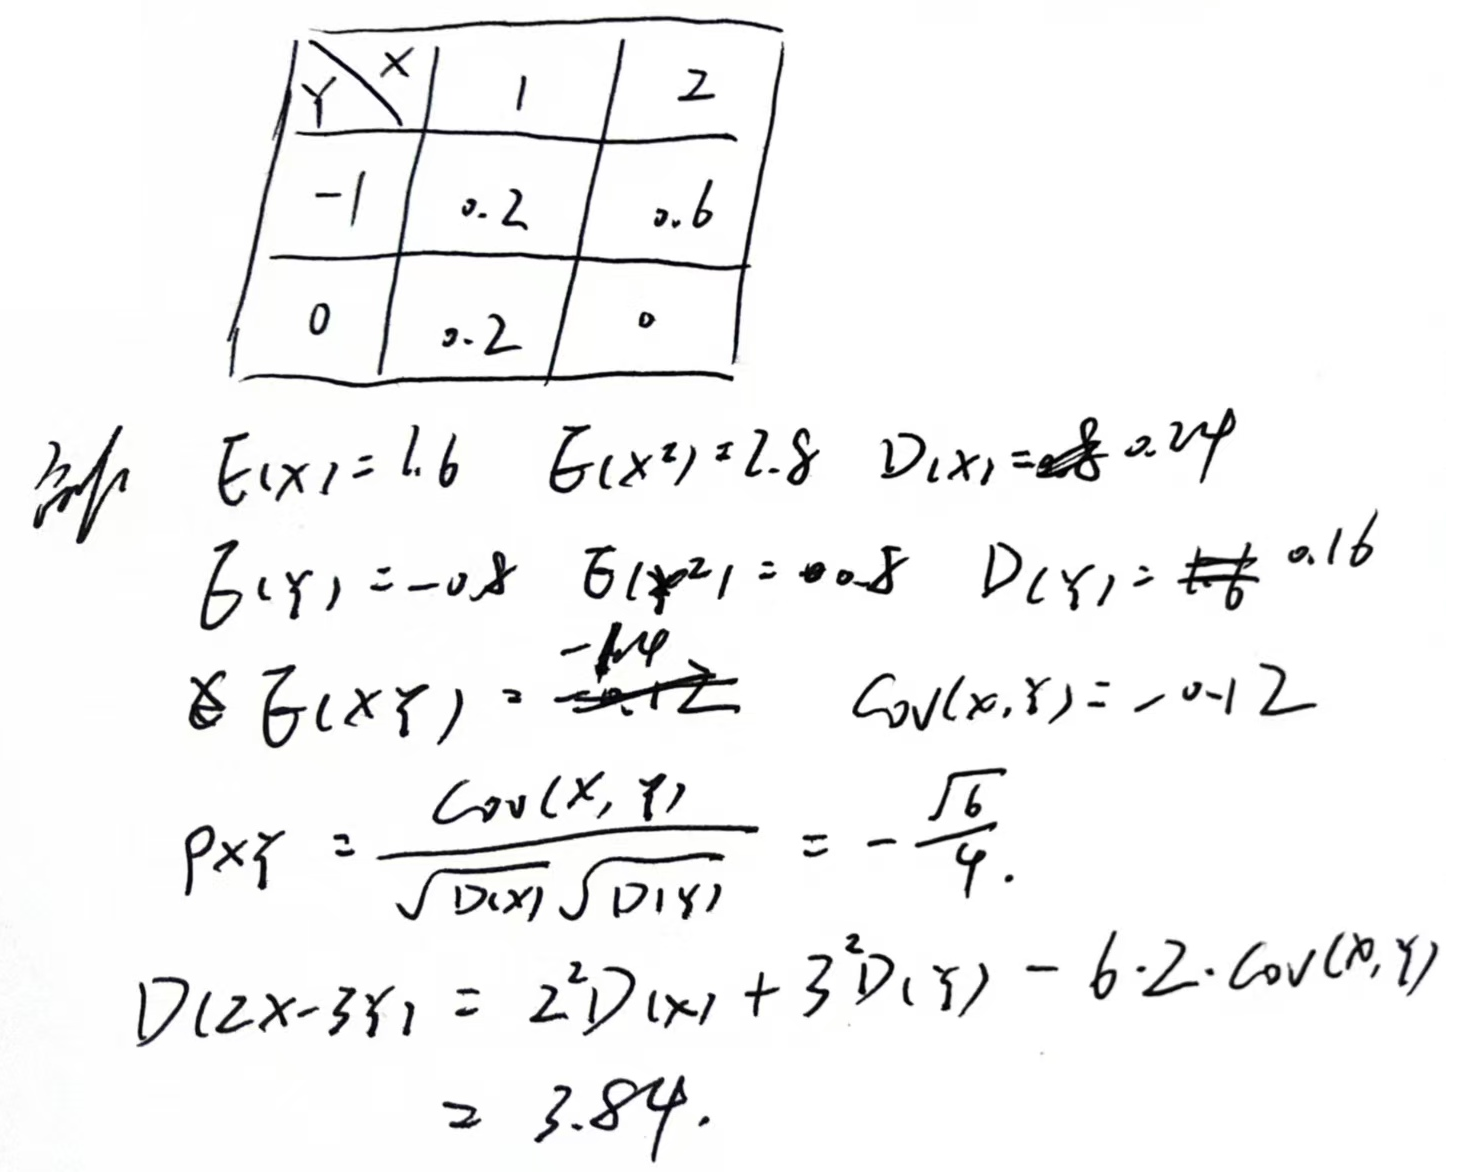 Y X 1 2
-1 0.2 0.6
0 0.2 0
解 E(X)=1.6 E(X²)=2.8 D(X)=0.24
E(Y)=-0.8 E(Y²)=0.8 D(Y)=0.16
E(XY)=-1.4 Cov(X,Y)=-0.12
ρXY = Cov(X,Y) / √D(X) √D(Y) = -√6/4.
D(2X-3Y) = 2²D(X) + 3²D(Y) - 6·2·Cov(X,Y)
= 3.84.